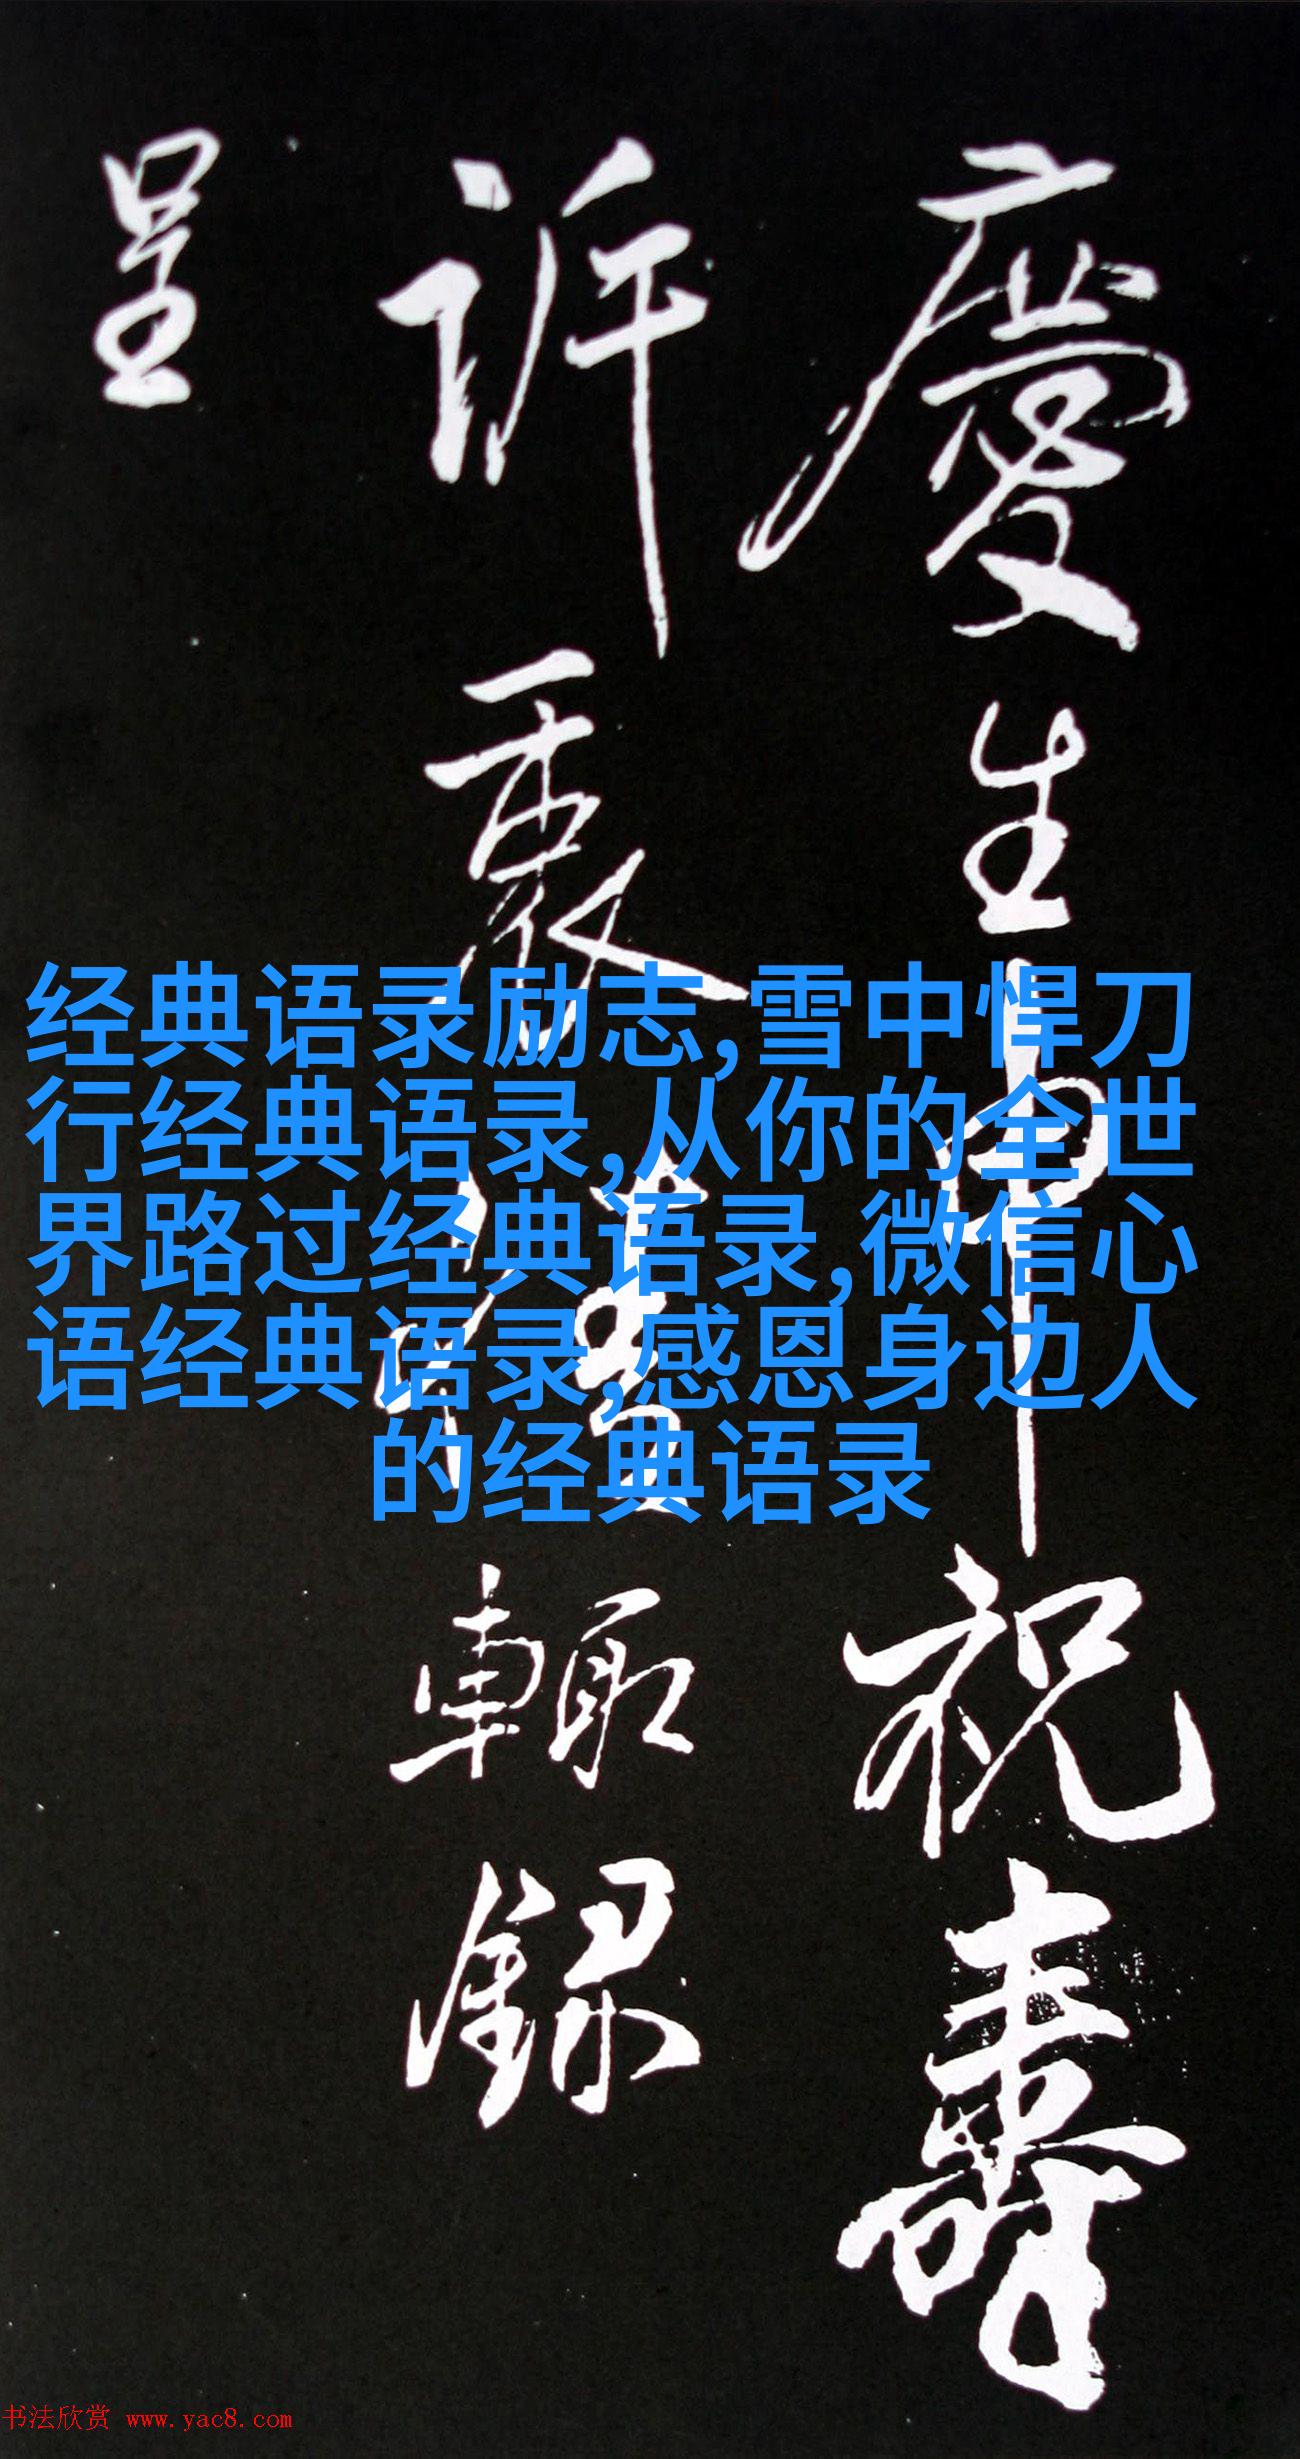 慶生申祝壽
訢衷懽輒録
呈
经典语录励志,雪中悍刀
行经典语录,从你的全世
界路过经典语录,微信心
语经典语录,感恩身边人
的经典语录
书法欣赏 www.yac8.com